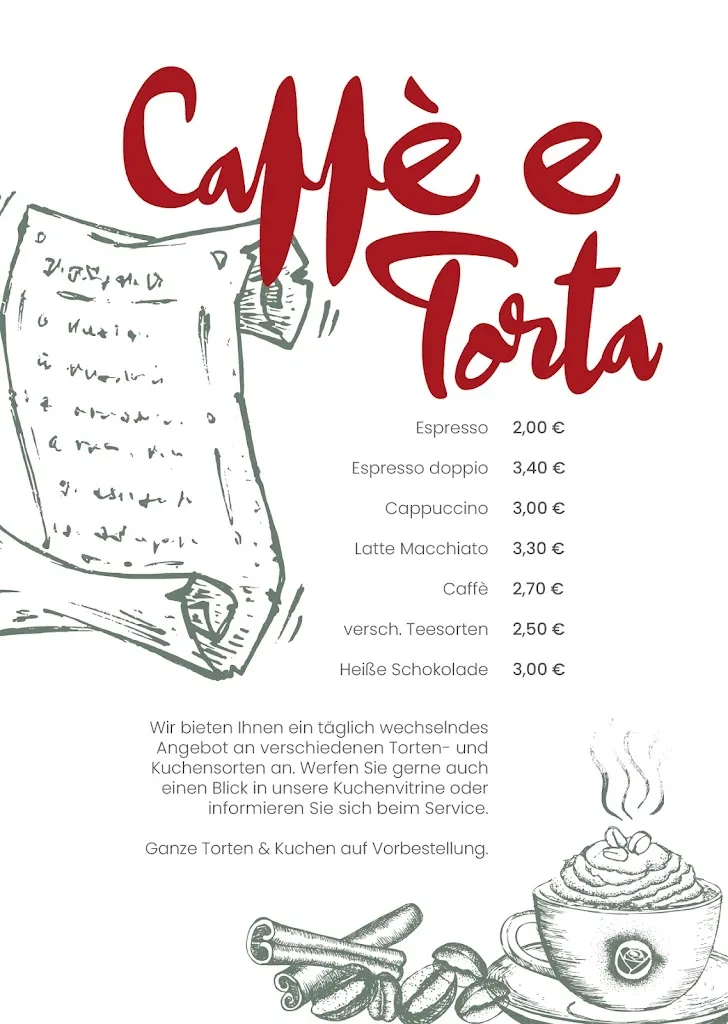 Caffè e
Torta
Espresso 2,00 €
Espresso doppio 3,40 €
Cappuccino 3,00 €
Latte Macchiato 3,30 €
Caffè 2,70 €
versch. Teesorten 2,50 €
Heiße Schokolade 3,00 €
Wir bieten Ihnen ein täglich wechselndes
Angebot an verschiedenen Torten- und
Kuchensorten an. Werfen Sie gerne auch
einen Blick in unsere Kuchenvitrine oder
informieren Sie sich beim Service.
Ganze Torten & Kuchen auf Vorbestellung.